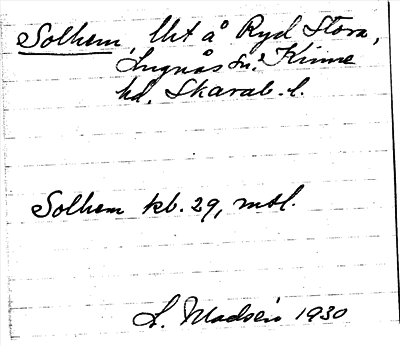 Solhem, lht å Ryd Stora,
Lugnås sn. Kinne
hd, Skarab. l.
Solhem kb. 29, mtl.
L. Madsén 1930